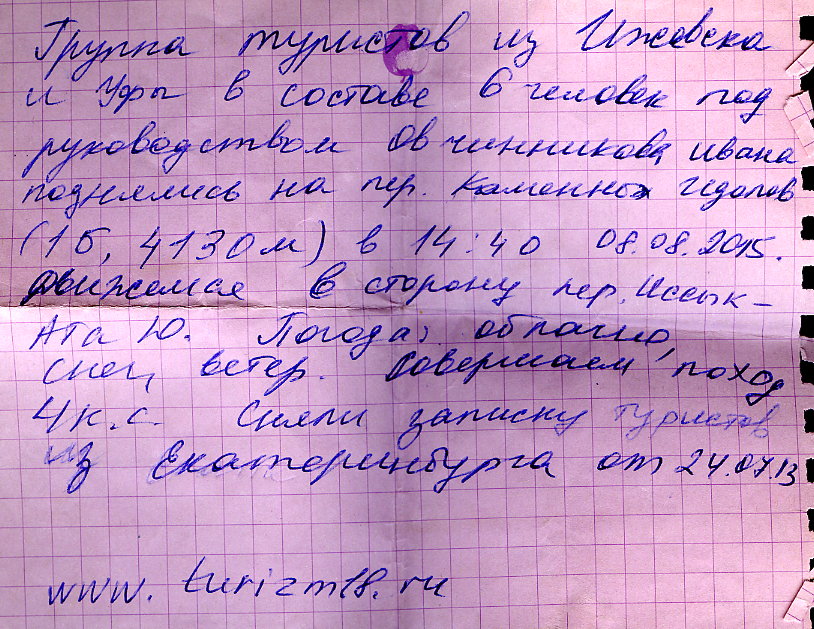 Группа туристов из Ижевска
и Уфы в составе 6 человек под
руководством Овчинникова Ивана
поднялись на пер. Каменных Идолов
(1Б, 4130м) в 14:40 08.08.2015.
Движемся в сторону пер. Иссык-
Ата Ю. Погода: облачно,
снег, ветер. Совершаем поход
4 к.с. Сняли записку туристов
из Екатеринбурга от 24.07.13
www.turizm18.ru